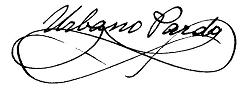 Urbano Pardo